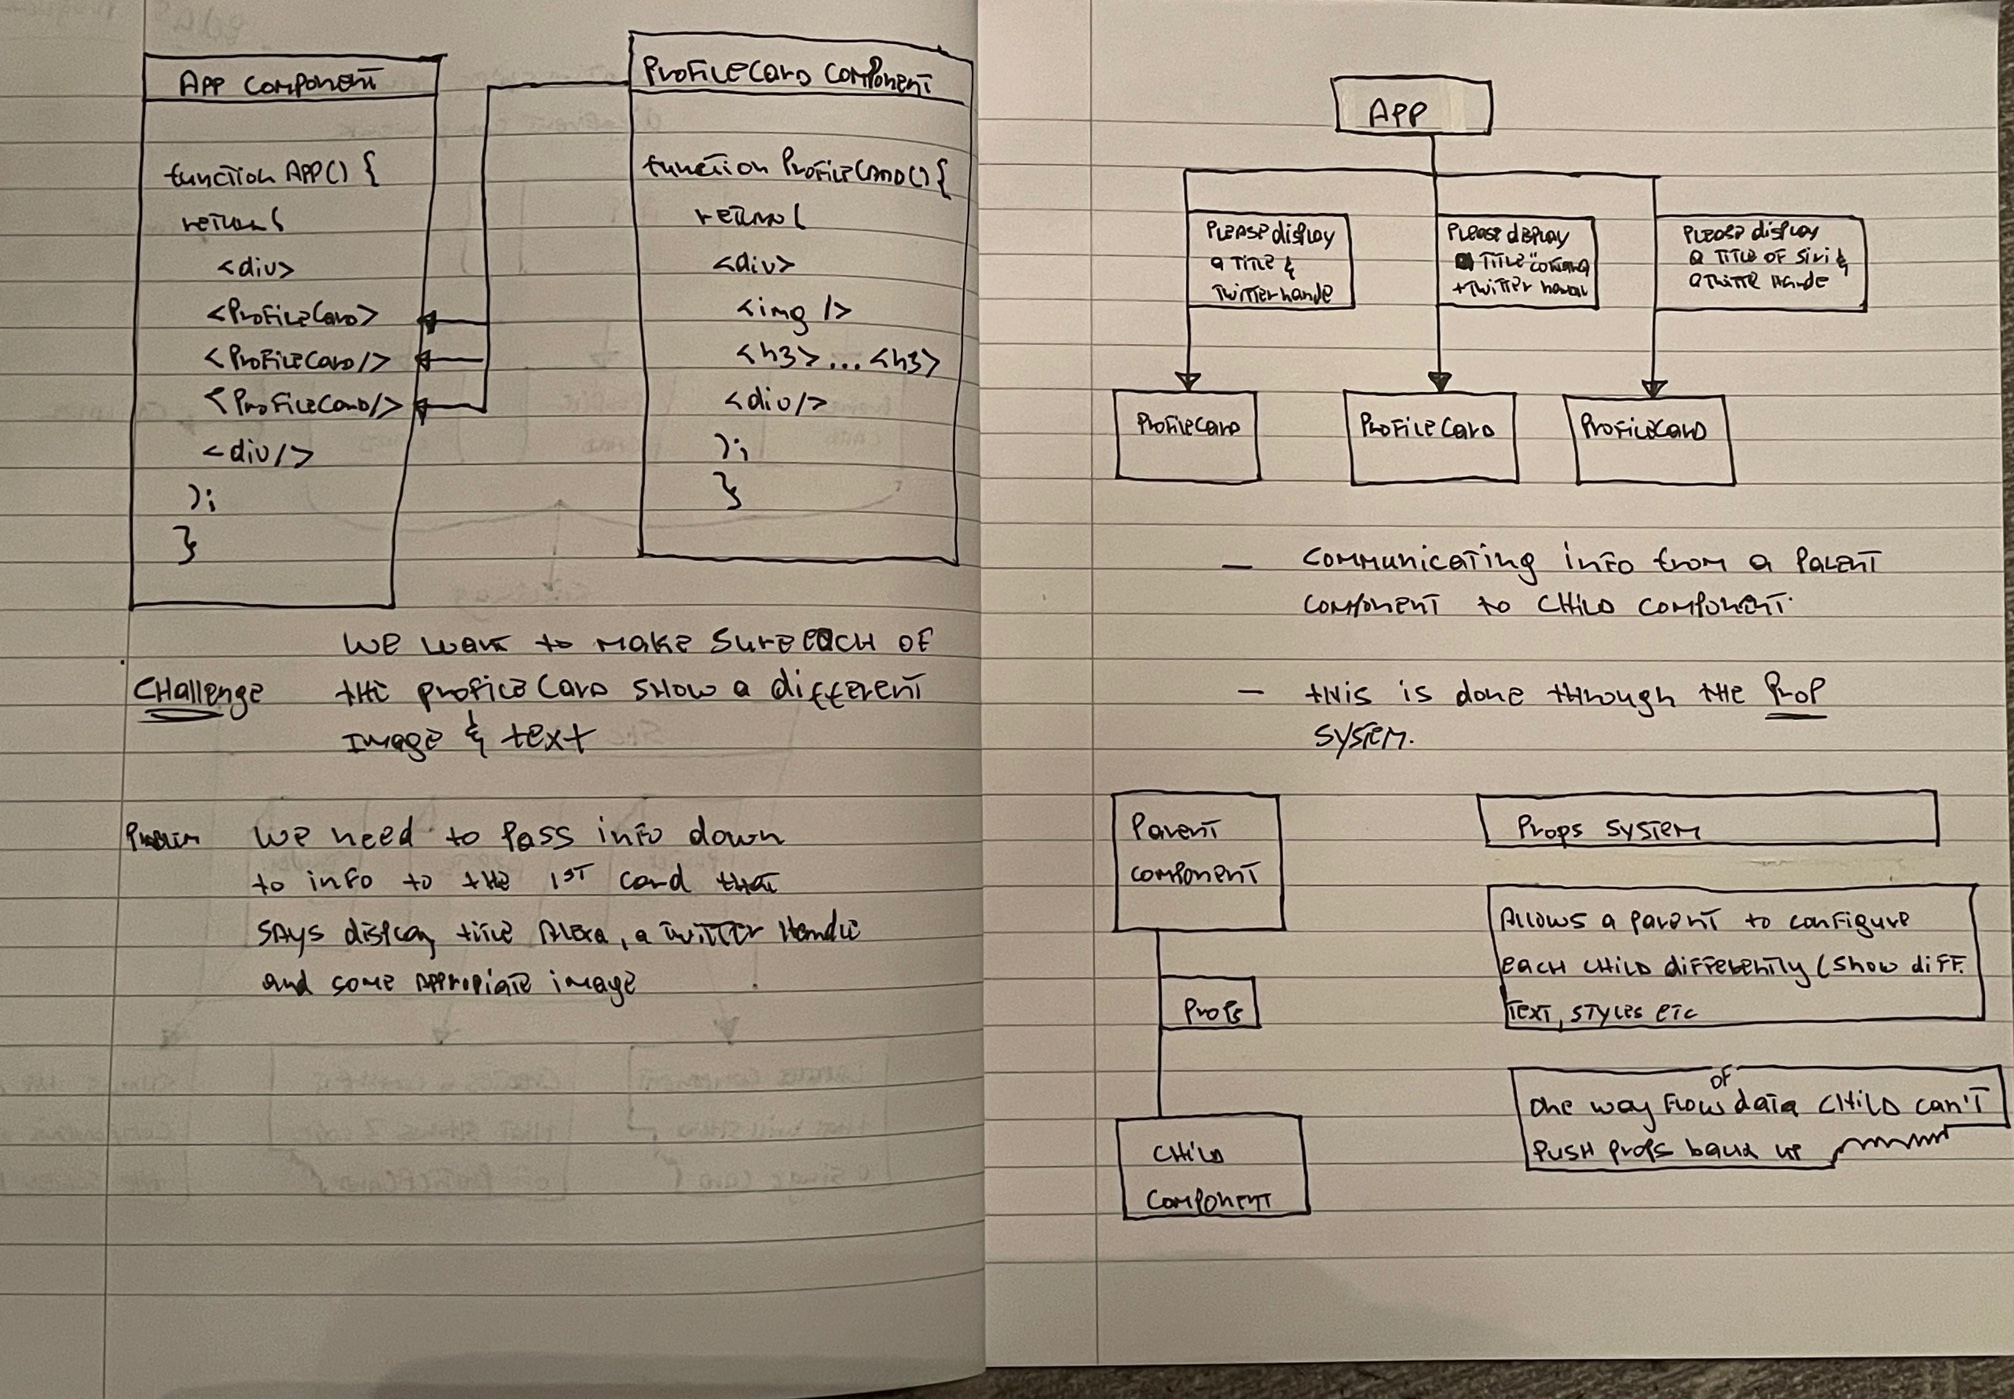 APP COMPONENT
function APP() {
return(
<div>
<ProfileCard>
<ProfileCard/>
<ProfileCard/>
<div/>
);
}
PROFILECARD COMPONENT
function ProfileCard() {
return(
<div>
<img />
<h3>...<h3>
<div/>
);
}
Challenge
We want to make sure each of
the profile card show a different
image & text
Problem
We need to pass info down
to info to the 1st card that
says display title Alexa, a twitter handle
and some appropiate image
APP
Please display
a title &
twitter hande
Please display
a title
+ twitter
Please display
a title of siri &
a twitte hande
ProfileCard
ProfileCard
ProfileCard
- Communicating info from a parent
component to child component.
- this is done through the Prop
system.
Parent
component
Props
Child
component
Props system
Allows a parent to configure
each child differently (show diff.
text, styles etc
One way flow of data child can't
push props back up